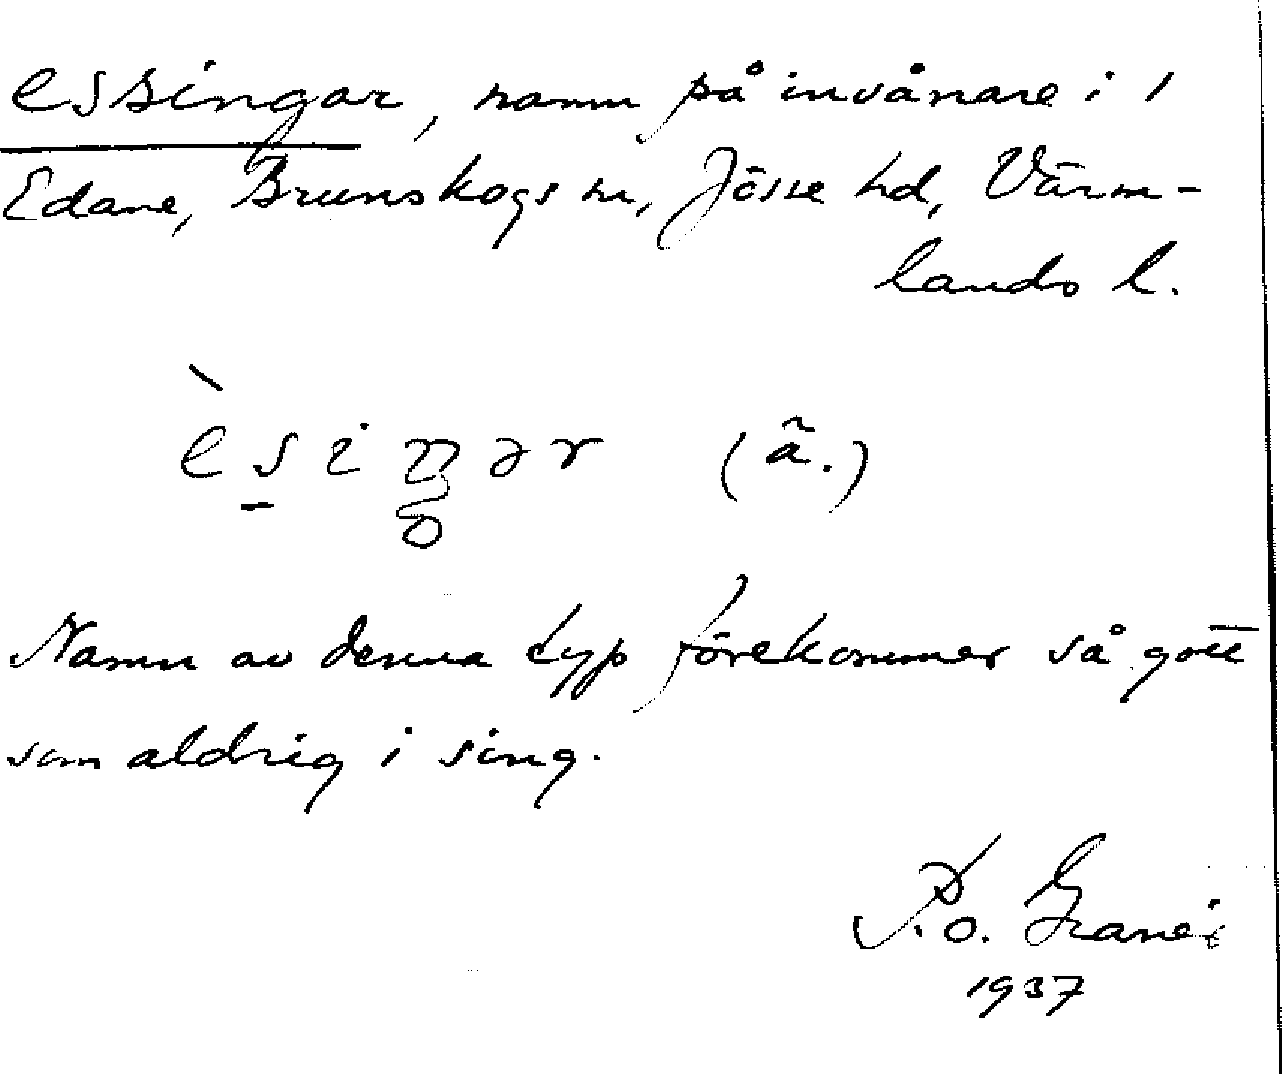 essingar, namn på invånare i 1
Edane, Brunskogs sn, Jösse hd, Värm-
lands l.
èsiŋər (ã.)
Namn av denna typ förekommer så gott
som aldrig i sing.
P.O.
1937